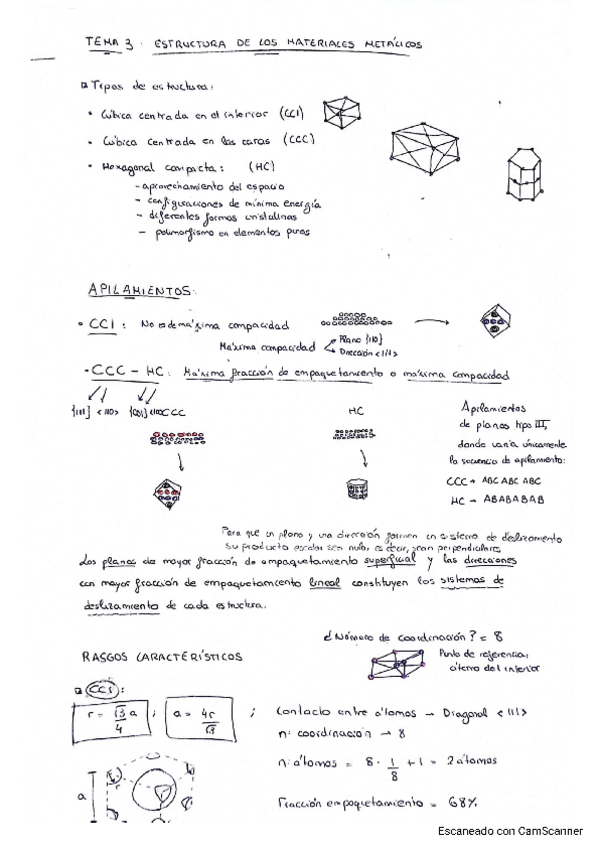 TEMA 3 : ESTRUCTURA DE LOS MATERIALES METÁLICOS
Tipos de estructura:
• Cúbica centrada en el interior (CCI)
• Cúbica centrada en las caras (CCC)
• Hexagonal compacta: (HC)
- aprovechamiento del espacio
- configuraciones de mínima energía
- diferentes formas cristalinas
- polimorfismo en elementos puros
APILAMIENTOS:
• CCI : No es de máxima compacidad
Máxima compacidad
Plano {110}
Dirección <111>
• CCC - HC : Máxima fracción de empaquetamiento o máxima compacidad
{111} <110> {001} CCC
HC
Apilamientos
de planos tipo III,
donde varía únicamente
la secuencia de apilamiento:
CCC → ABC ABC ABC
HC → ABABABAB
Para que un plano y una dirección formen un sistema de deslizamiento
su producto escalar sea nulo, es decir, sean perpendiculares
Los planos de mayor fracción de empaquetamiento superficial y las direcciones
con mayor fracción de empaquetamiento lineal constituyen los sistemas de
deslizamiento de cada estructura.
¿Número de coordinación? = 8
RASGOS CARACTERÍSTICOS
Punto de referencia,
átomo del interior
CCI :
r = √3 a / 4 ; a = 4r / √3 ; Contacto entre átomos → Diagonal <111>
n: coordinación → 8
n: átomos = 8 · 1/8 + 1 = 2 átomos
a
Fracción empaquetamiento = 68%
Escaneado con CamScanner